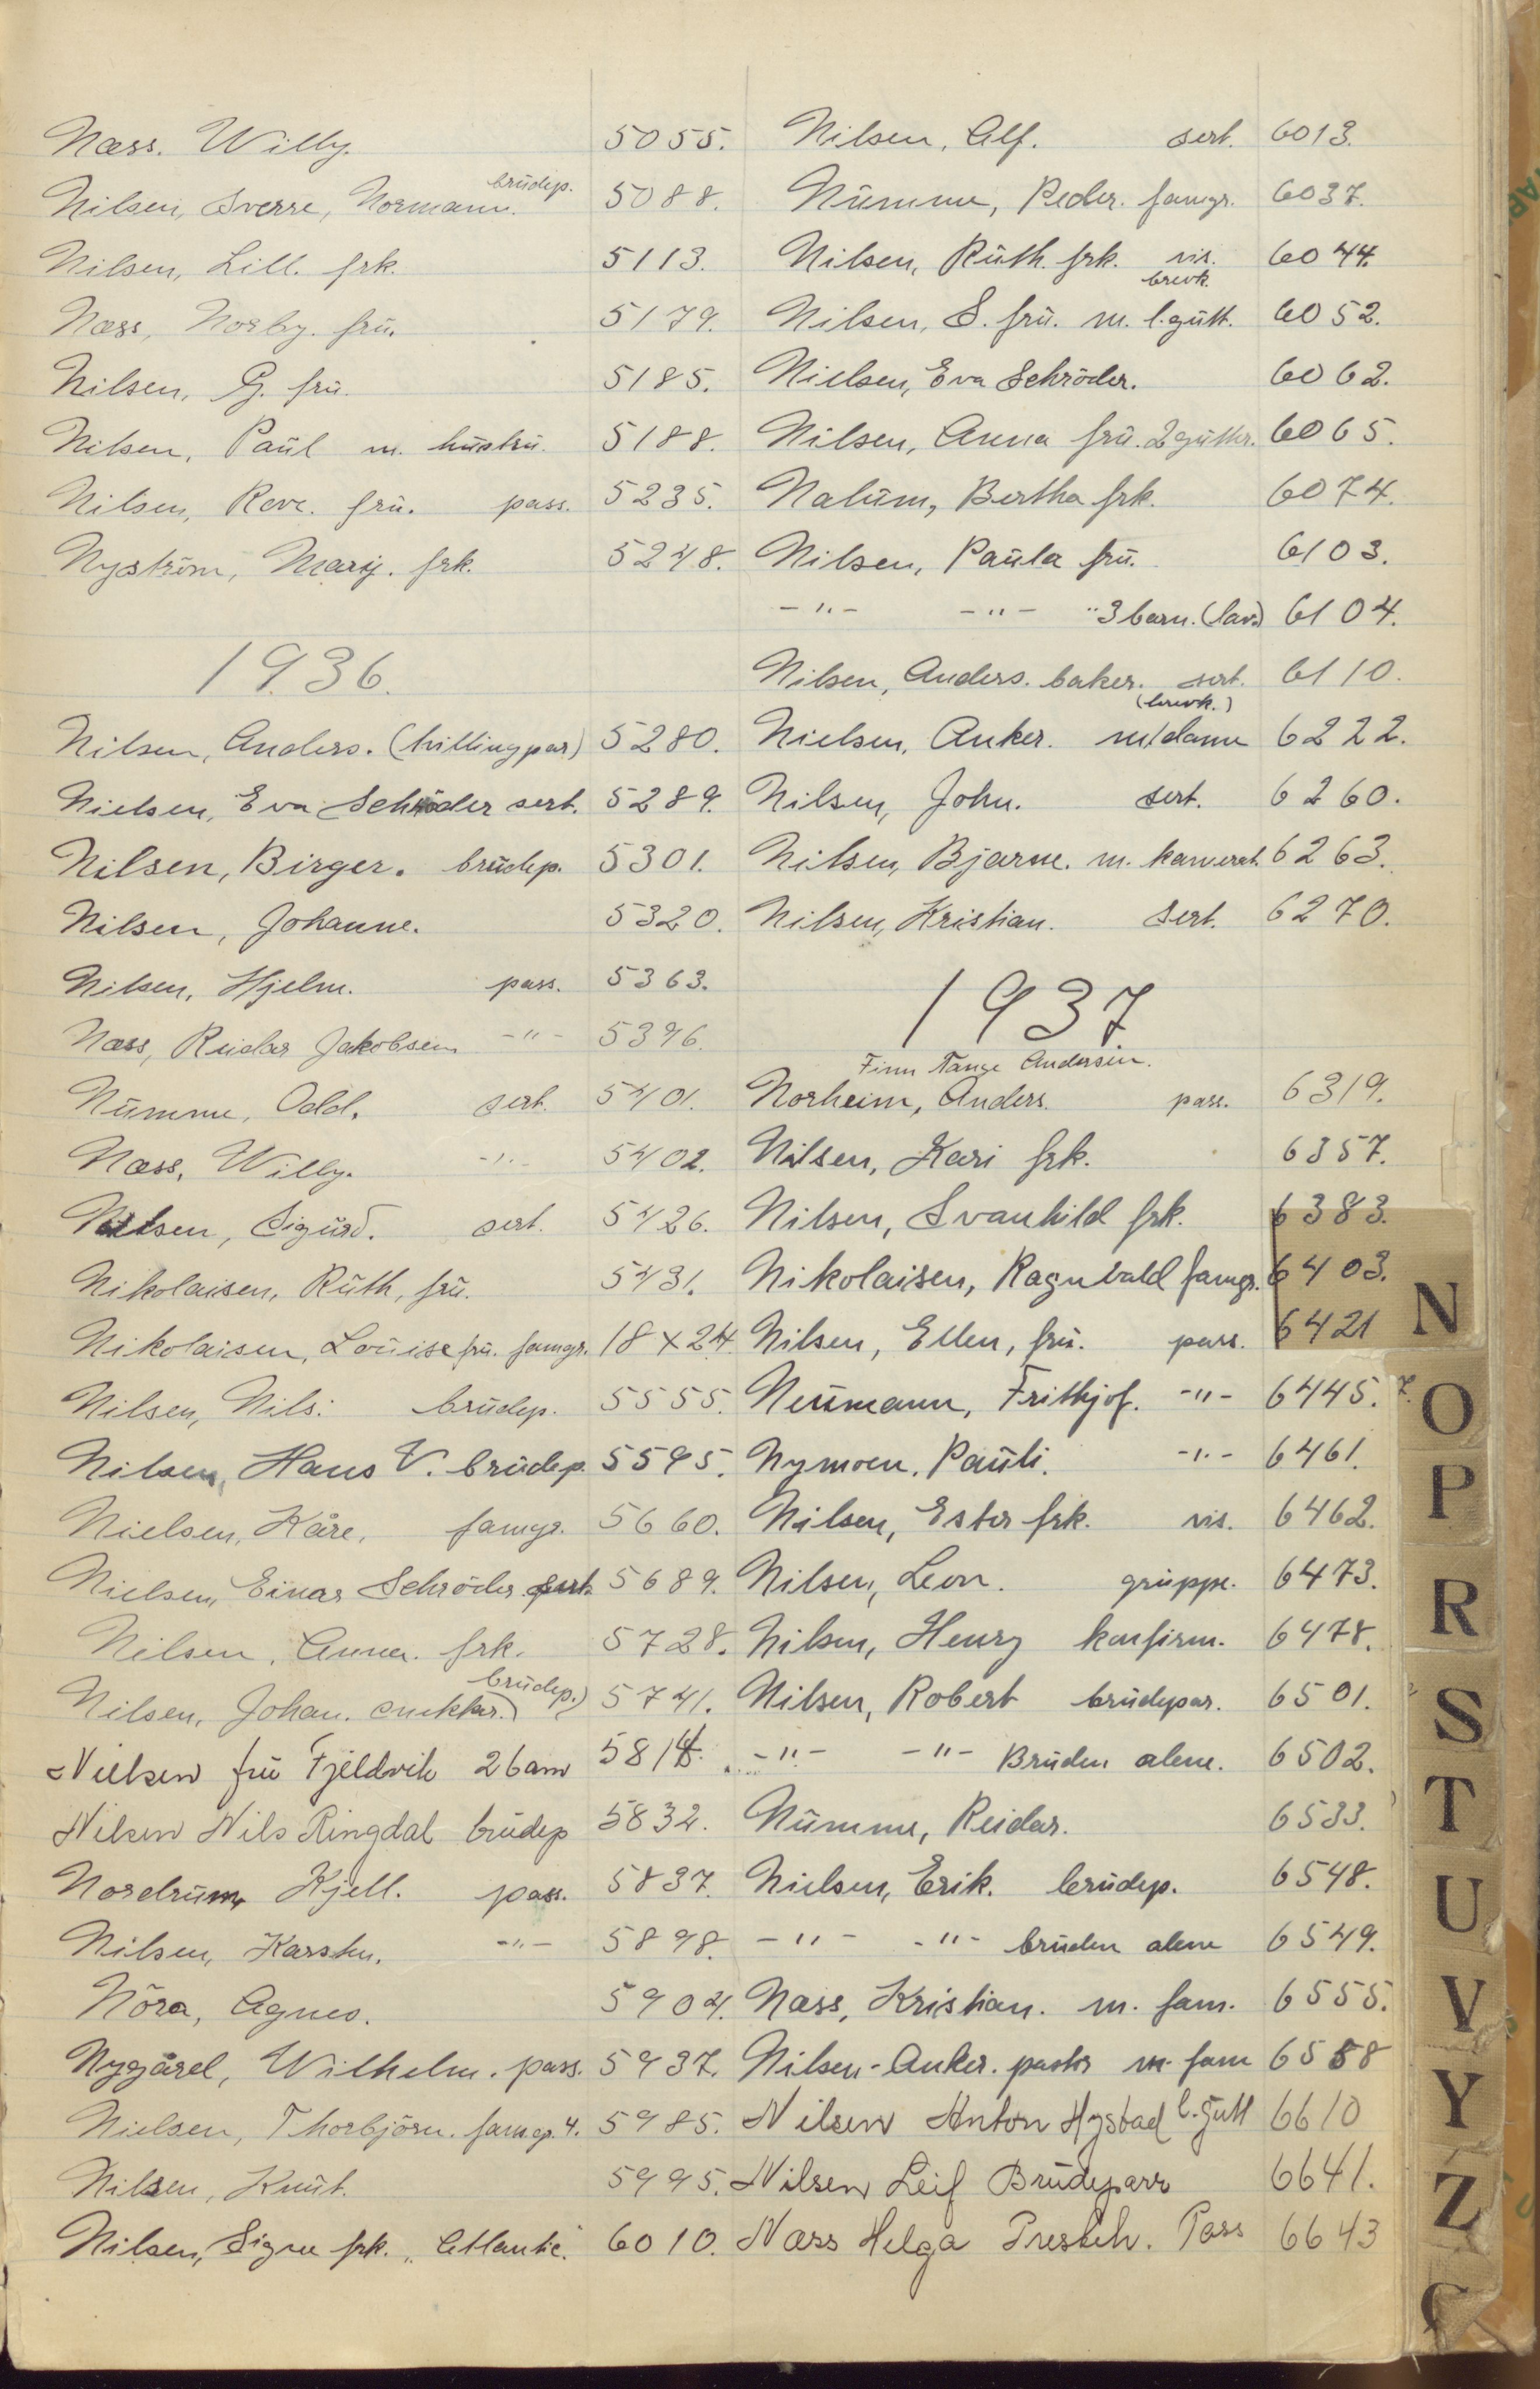 Næss. Willy. 5055.
Nilsen, Sverre, Normann. brudep. 5088.
Nilsen, Lill. frk. 5113.
Næss, Norby. fru. 5179.
Nilsen, G. fru. 5185.
Nilsen, Paul m. hustru. 5188.
Nilsen, fru. pass. 5235.
Nyström, Mary. frk. 5248.
1936.
Nilsen, Anders. (tvillingpar) 5280.
Nielsen, Eva Schröder sert. 5289.
Nilsen, Birger. brudep. 5301.
Nilsen, Johanne. 5320.
Nilsen, Hjelm. pass. 5363.
Næss, Reidar Jakobsen -"- 5396.
Numme, Odd. sert. 5401.
Næss, Willy. -"- 5402.
Nilsen, Sigurd. sert. 5426.
Nikolaisen, Ruth, fru. 5431.
Nikolaisen, Louise fru. famgr. 18 x 24.
Nilsen, Nils. brudep. 5555.
Nilsen, Hans V. brudep. 5595.
Nielsen, Kåre. famgr. 5660.
Nielsen, Einar Schröder sert. 5689.
Nilsen, Anna. frk. 5728.
Nilsen, Johan. snekker. (brudep.) 5741.
Nielsen fru Fjeldvik 2 barn 5814.
Nilsen Nils Ringdal brudep 5832.
Nordrum, Kjell. pass. 5837.
Nilsen, Karsten. -"- 5898.
Nöra, Agnes. 5904.
Nygård, Wilhelm. pass. 5937.
Nielsen, Thorbjörn. famgr. 4. 5985.
Nilsen, Knut. 5995.
Nilsen, Signe frk. "Atlantic." 6010.
Nilsen, Alf. sert. 6013.
Numme, Peder. famgr. 6037.
Nilsen, Ruth. frk. vis. brevk. 6044.
Nilsen, S. fru. m. l. gutt. 6052.
Nielsen, Eva Schröder. 6062.
Nilsen, Anna fru. 2 gutter. 6065.
Nalum, Bertha frk. 6074.
Nilsen, Paula fru. 6103.
-"- -"- "3 barn. (lav.) 6104.
Nilsen, Anders. baker. sert. (brevk.) 6110.
Nielsen, Anker. m/dame 6222.
Nilsen, John. sert. 6260.
Nilsen, Bjarne. m. kamerat. 6263.
Nilsen, Kristian. sert. 6270.
1937
Finn Tange Andersen.
Norheim, Anders. pass. 6319.
Nilsen, Kari frk. 6357.
Nilsen, Svanhild frk. 6383.
Nikolaisen, Ragnvald famgr. 6403.
Nilsen, Ellen, fru. pass. 6421
Neumann, Frithjof. -"- 6445.
Nymoen. Pauli. -"- 6461.
Nilsen, Ester frk. vis. 6462.
Nilsen, Leon. gruppe. 6473.
Nilsen, Henry konfirm. 6478.
Nilsen, Robert brudepar. 6501.
-"- -"- Bruden alene. 6502.
Numme, Reidar. 6533.
Nielsen, Erik. brudep. 6548.
-"- -"- bruden alene 6549.
Næss, Kristian. m. fam. 6555.
Nilsen-Anker. pastor m. fam 6558
Nilsen Anton Hystad l. gutt 6610
Nilsen Leif Brudeparr 6641.
Næss Helga Presteh. Pass 6643
N
O
P
R
S
T
U
V
Y
Z